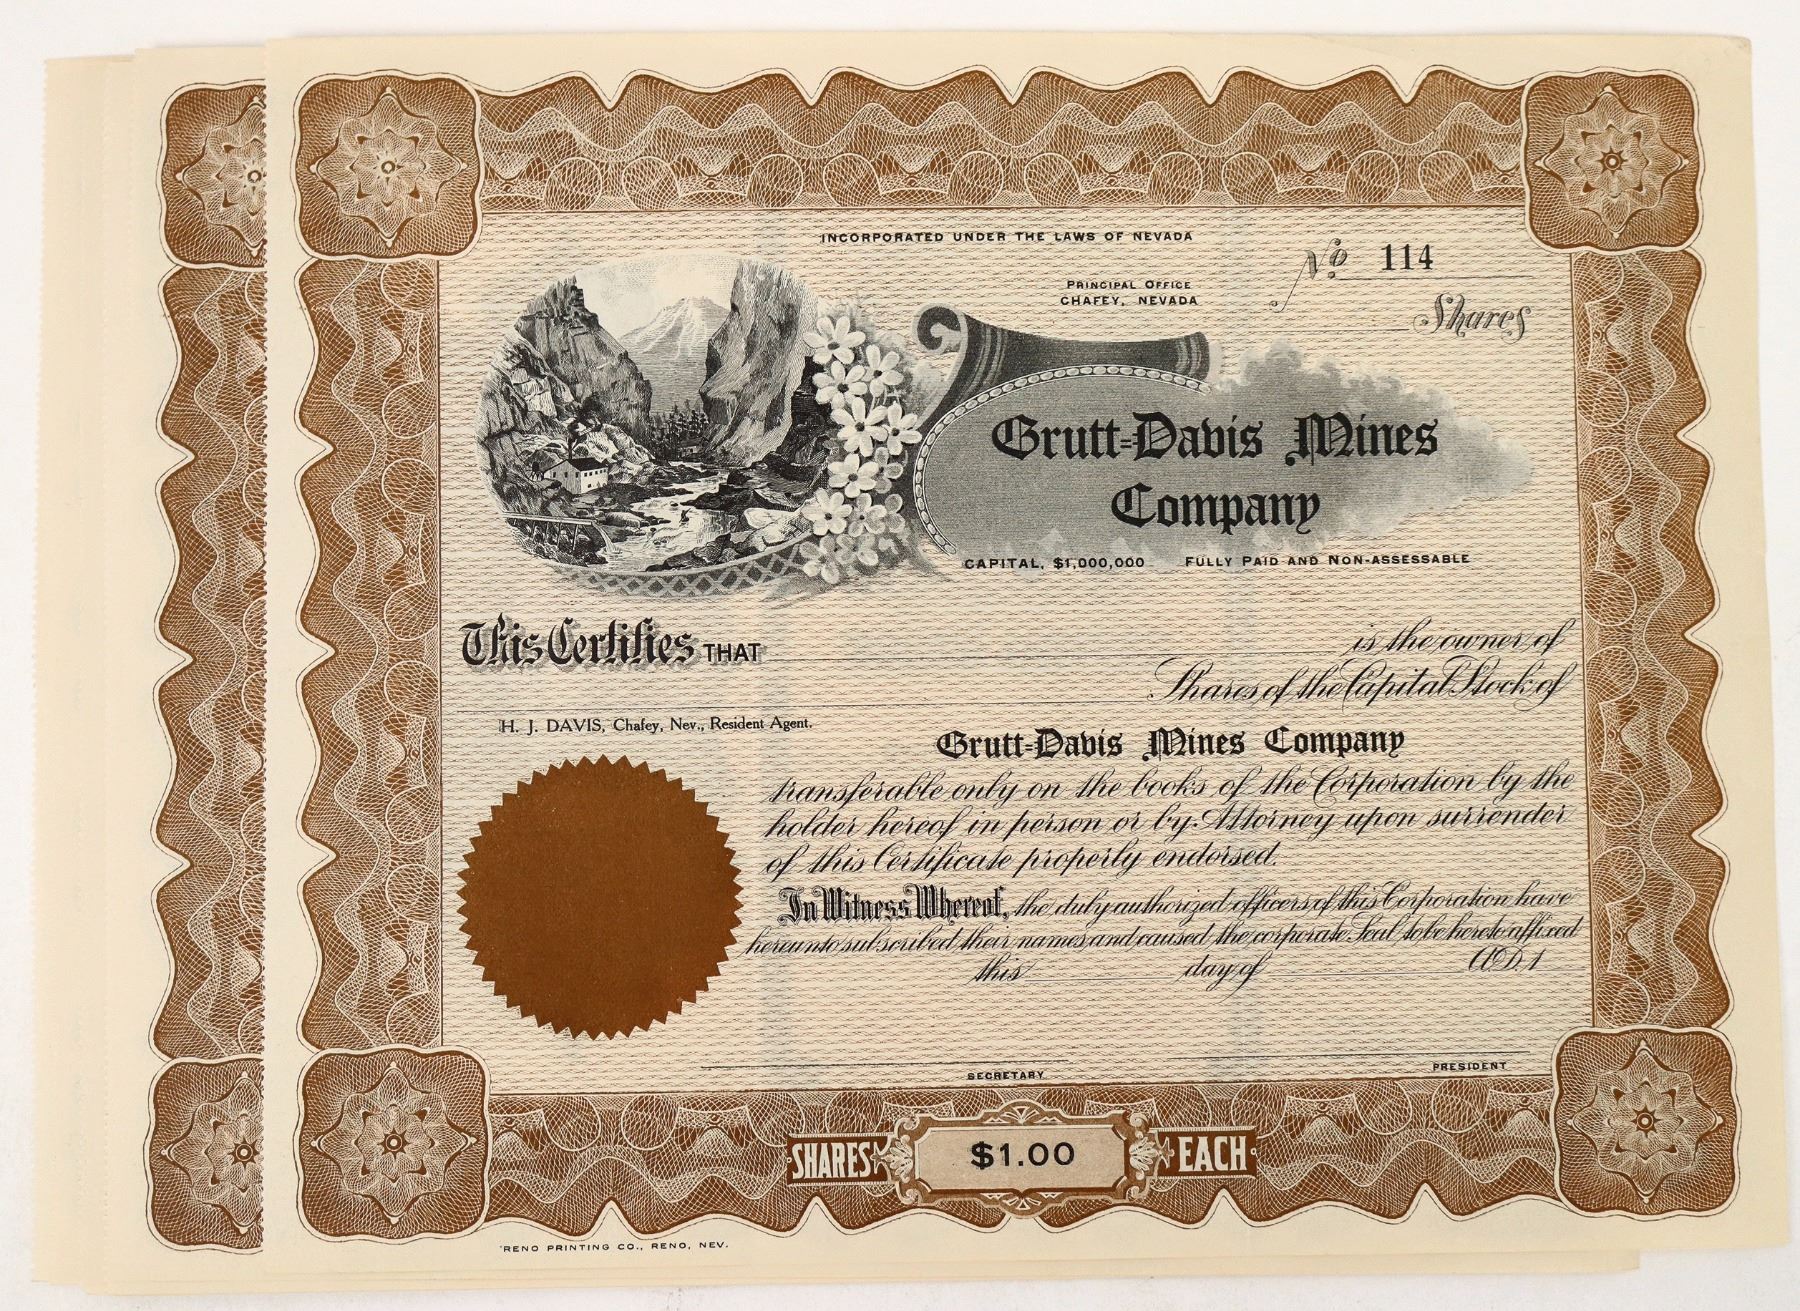 INCORPORATED UNDER THE LAWS OF NEVADA
No 114
PRINCIPAL OFFICE
CHAFEY, NEVADA
Shares
Grutt-Davis Mines
Company
CAPITAL, $1,000,000 FULLY PAID AND NON-ASSESSABLE
This Certifies THAT is the owner of
Shares of the Capital Stock of
H. J. DAVIS, Chafey, Nev., Resident Agent.
Grutt-Davis Mines Company
transferable only on the books of the Corporation by the
holder hereof in person or by Attorney upon surrender
of this Certificate properly endorsed.
In Witness Whereof, the duly authorized officers of this Corporation have
hereunto subscribed their names and caused the corporate Seal to be hereto affixed
this day of A.D. 1
SECRETARY
PRESIDENT
SHARES $1.00 EACH
RENO PRINTING CO., RENO, NEV.